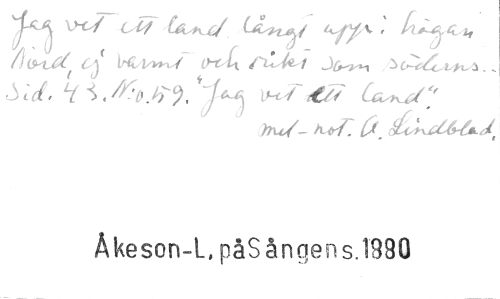 Jag vet ett land långt upp i högan
Nord, ej varmt och rikt som söderns...
Sid. 43. N:o. 59. "Jag vet ett land".
mel-not. A. Lindblad.
Åkeson-L, påSångens.1880